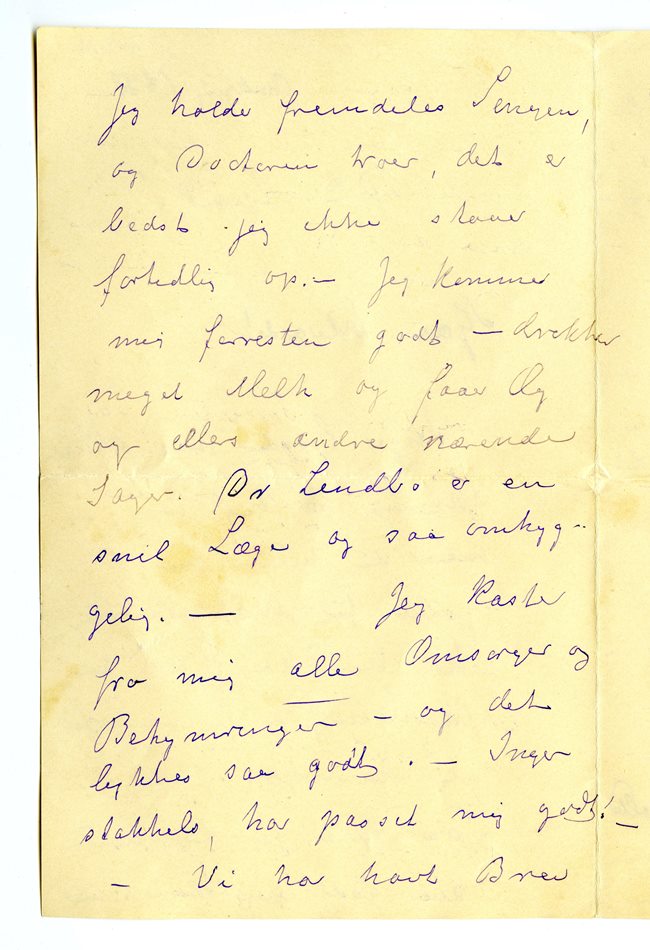 Jeg holde fremdeles Sengen,
og Doctoren troer, det er
bedst jeg ikke staaer
fortidlig op. — Jeg kommer
mig forresten godt — drikker
meget Melk og faaer Æg
og ellers andre nærende
Sager. Dr Lendbo er en
snil Læge og saa omhyg-
gelig. — Jeg kaste
fra mig alle Omsorger og
Bekymringer — og det
lykkes saa godt. — Inger
stakkels, har passet mig godt! —
— Vi har havt Brev